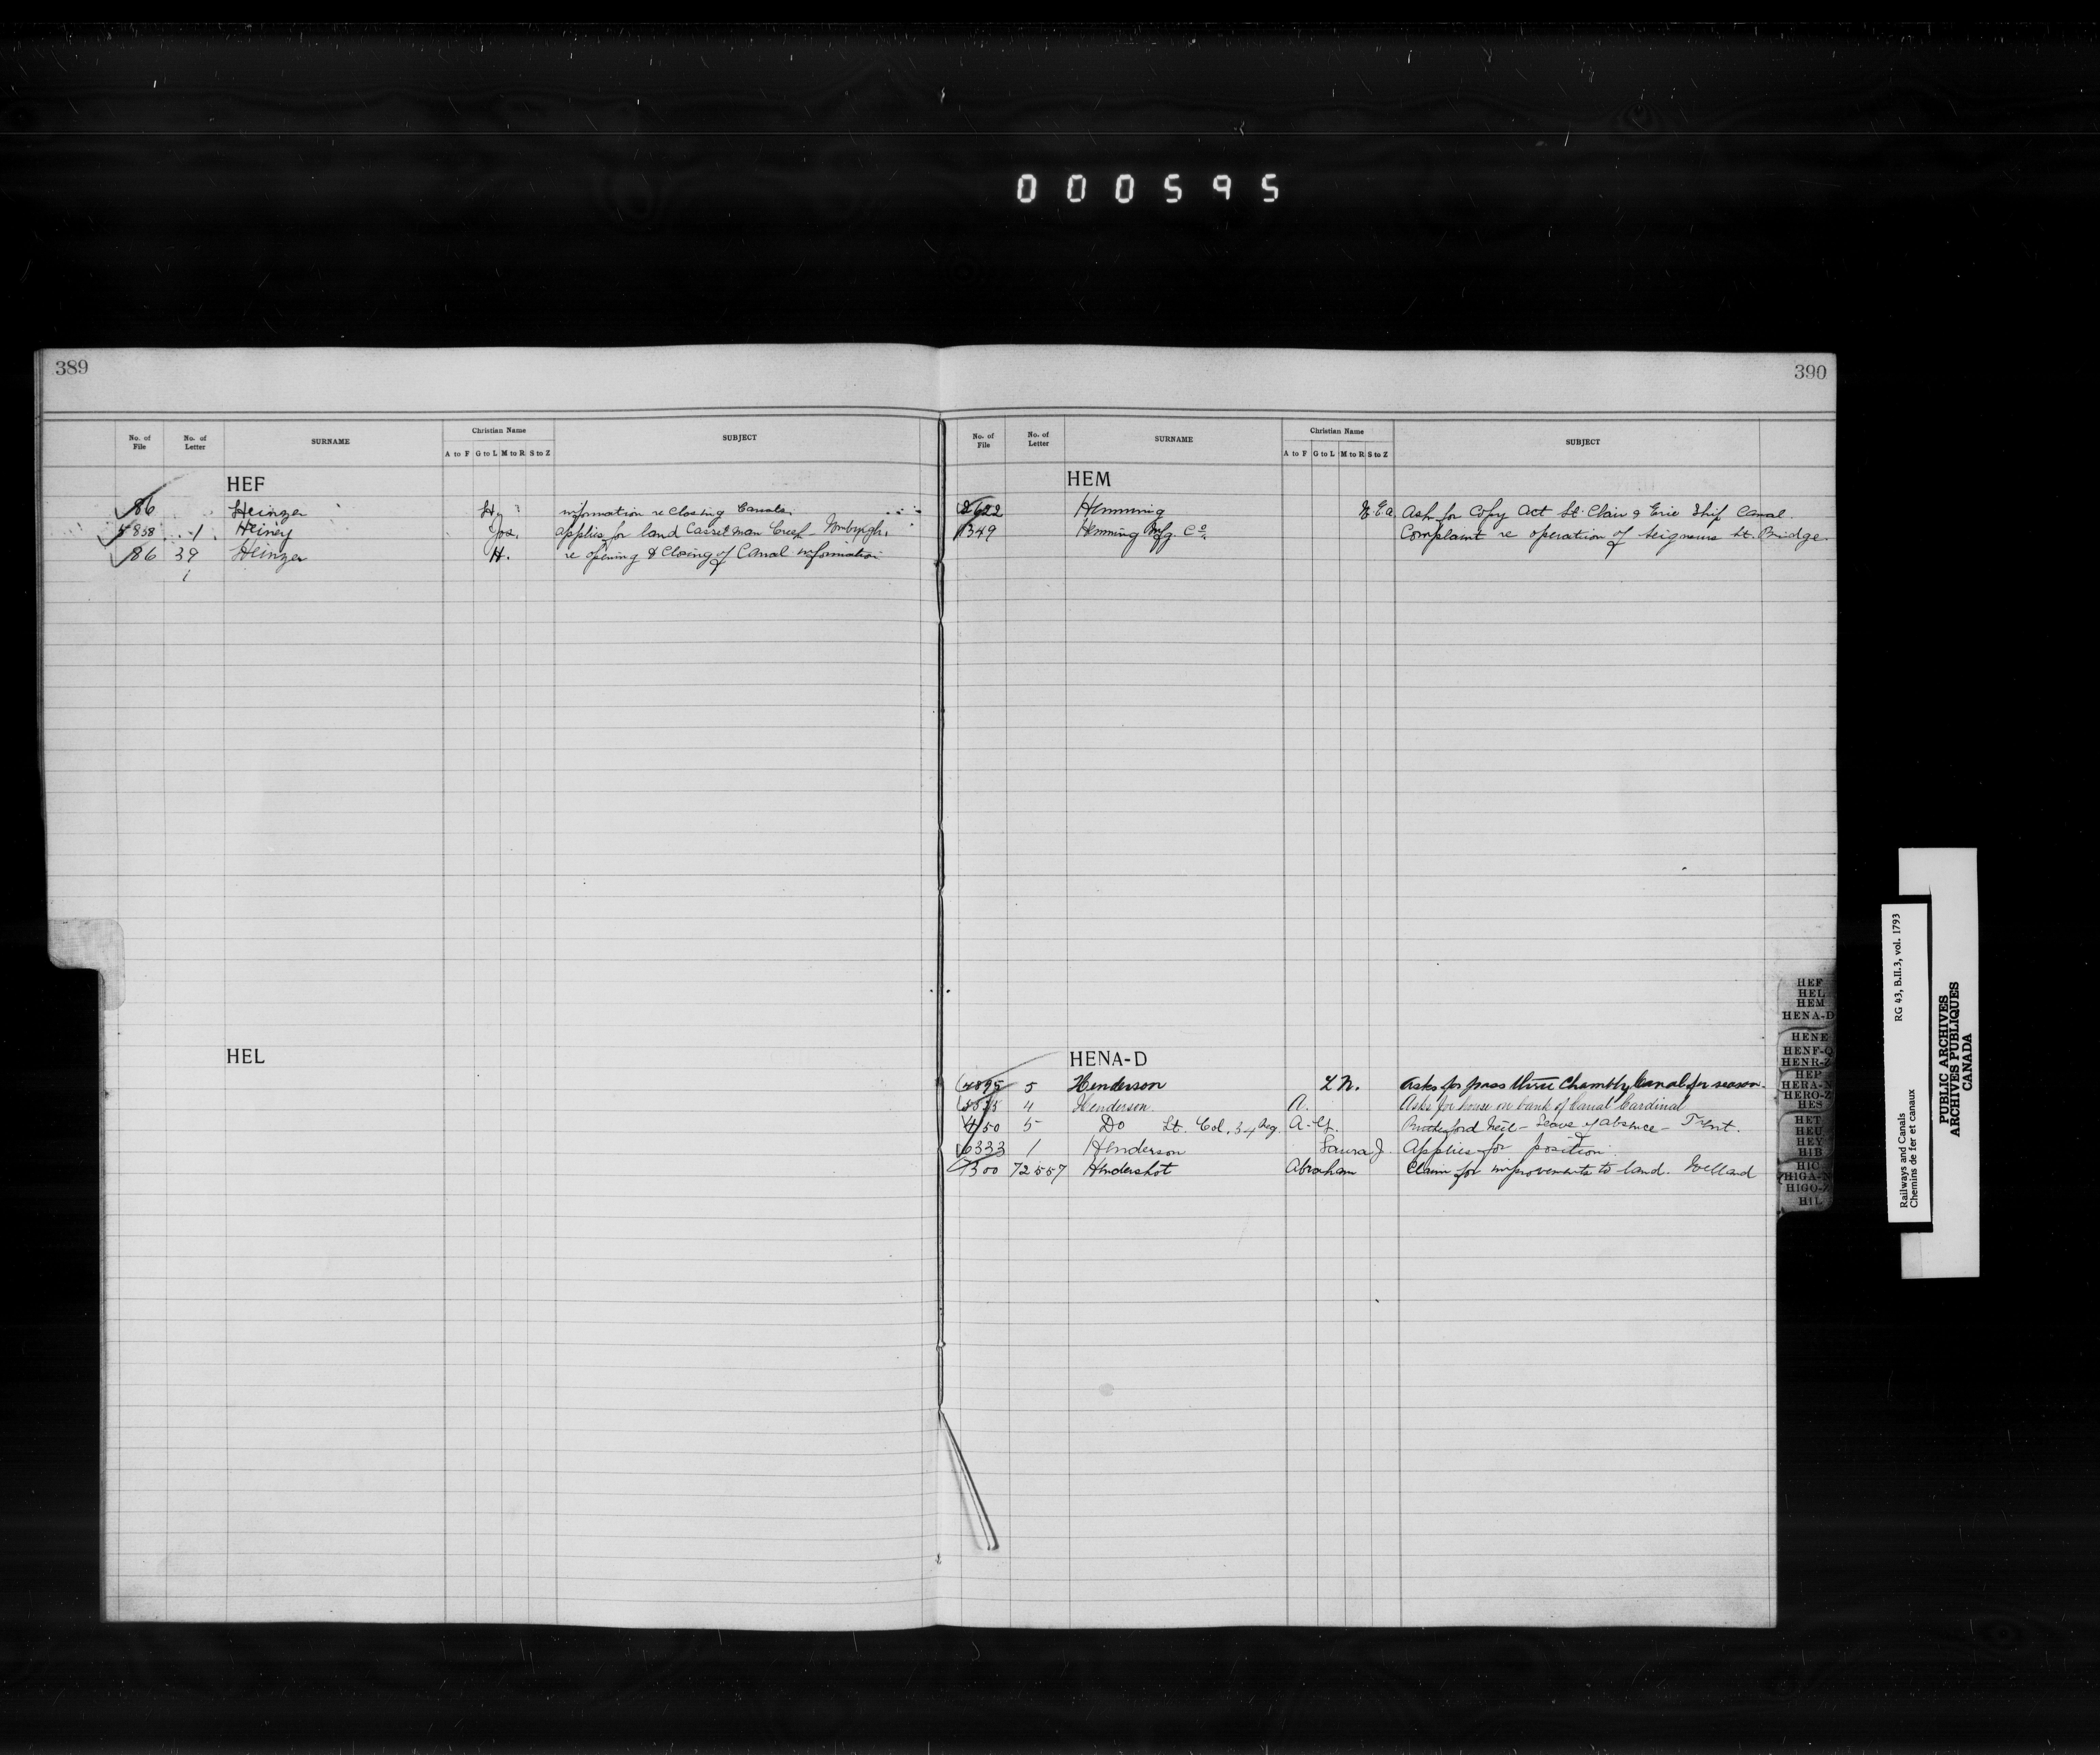 000595
389
No. of File No. of Letter SURNAME Christian Name A to F G to L M to R S to Z SUBJECT
HEF
86 Heinzer Hy information re Closing Canals.
5858 1 Heiney Jos. applies for land Casselman Creek
86 39 Heinzer H. re opening & Closing of Canal information
1
HEL
390
No. of File No. of Letter SURNAME Christian Name A to F G to L M to R S to Z SUBJECT
HEM
2622 Hemming Ask for Copy Act St. Clair & Erie Ship Canal.
1349 Hemming Mfg. Co. Complaint re operation of Seigneurs St. Bridge.
HENA-D
4895 5 Henderson L N. Asks for pass thru Chambly Canal for season.
4 Henderson. A. Asks for house on bank of Canal Cardinal
4150 5 Do Lt. Col. 34 Reg. A. Rutherford Neil - Leave of absence - Trent.
6333 1 Henderson Laura J. Applies for position.
7300 72557 Hendershot Abraham Claim for improvements to land. Welland
HEF
HEL
HEM
HENA-D
HENE
HENF-Q
HENR-Z
HEP
HERA-N
HERO-Z
HES
HET
HEU
HEY
HIB
HIC
HIGA-N
HIGO-Z
HIL
Railways and Canals RG 43, B.II.3, vol. 1793
Chemins de fer et canaux
PUBLIC ARCHIVES
ARCHIVES PUBLIQUES
CANADA